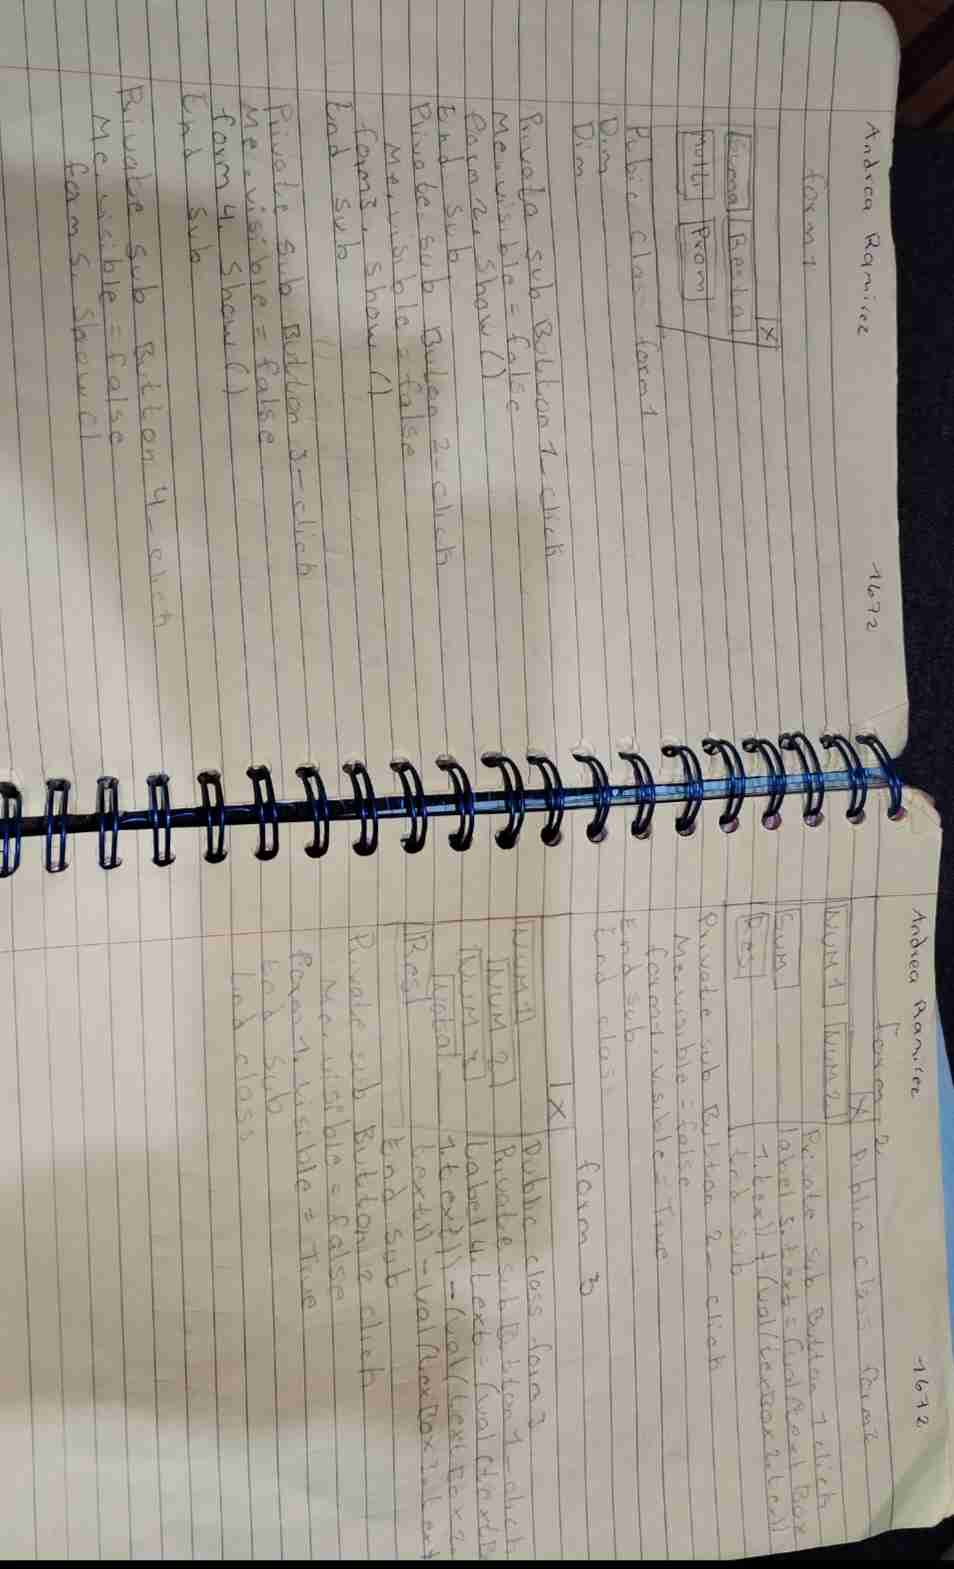 Andrea Ramirez 1672
form 1
X
Suma Resta
Multi Prom
Public class form1
Dim
Dim
Private sub Button 1_click
Me.visible = false
form 2. show ()
End sub
Private sub Buton 2_click
Me.visible = false
form3. show ()
End sub
Private sub Button 3_click
Me.visible = false
form 4. show ()
End sub
Private sub Button 4_click
Me.visible = false
form 5. show ()
Andrea Ramirez 1672
form 2
X Public class form2
NUM 1 NUM 2 Private sub Button 1 click
SUM label 5.text = (val(text Box
Res 1.tex)) + (val(textBox 2.tex))
End sub
Private sub Button 2_click
Me.visible = false
form1.visible = True
End sub
End class
form 3
X
NUM 1 Public class form3
NUM 2 Private sub Button 1_click
NUM 3 Label 4. text = (val(textB
Total 1.text)) - (val(text Box 2.
Res text)) - (val(texBox 3.text
End sub
Private sub Button 2 click
Me.visible = false
form 1. visible = True
End sub
End class